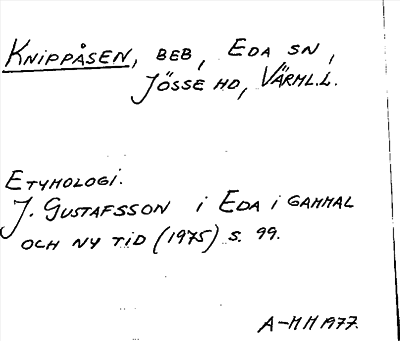 KNIPPÅSEN, BEB, EDA SN,
JÖSSE HD, VÄRML.L.
ETYMOLOGI.
J. GUSTAFSSON i EDA i GAMMAL
OCH NY TID (1975) S. 99.
A-MM 1977.